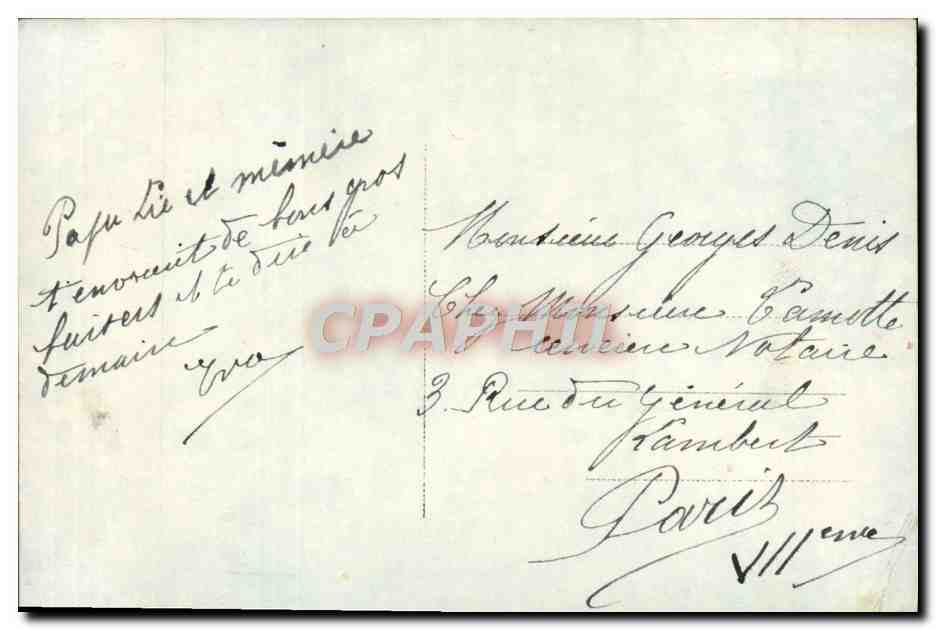 Papu Lie et mémère
t'envoient de bons gros
baisers et te dire à
demain
Monsieur Georges Denis
Chez Monsieur Camotte
ancien Notaire
3. Rue du Général
Lambert
Paris
VIIeme
CPAPHIL